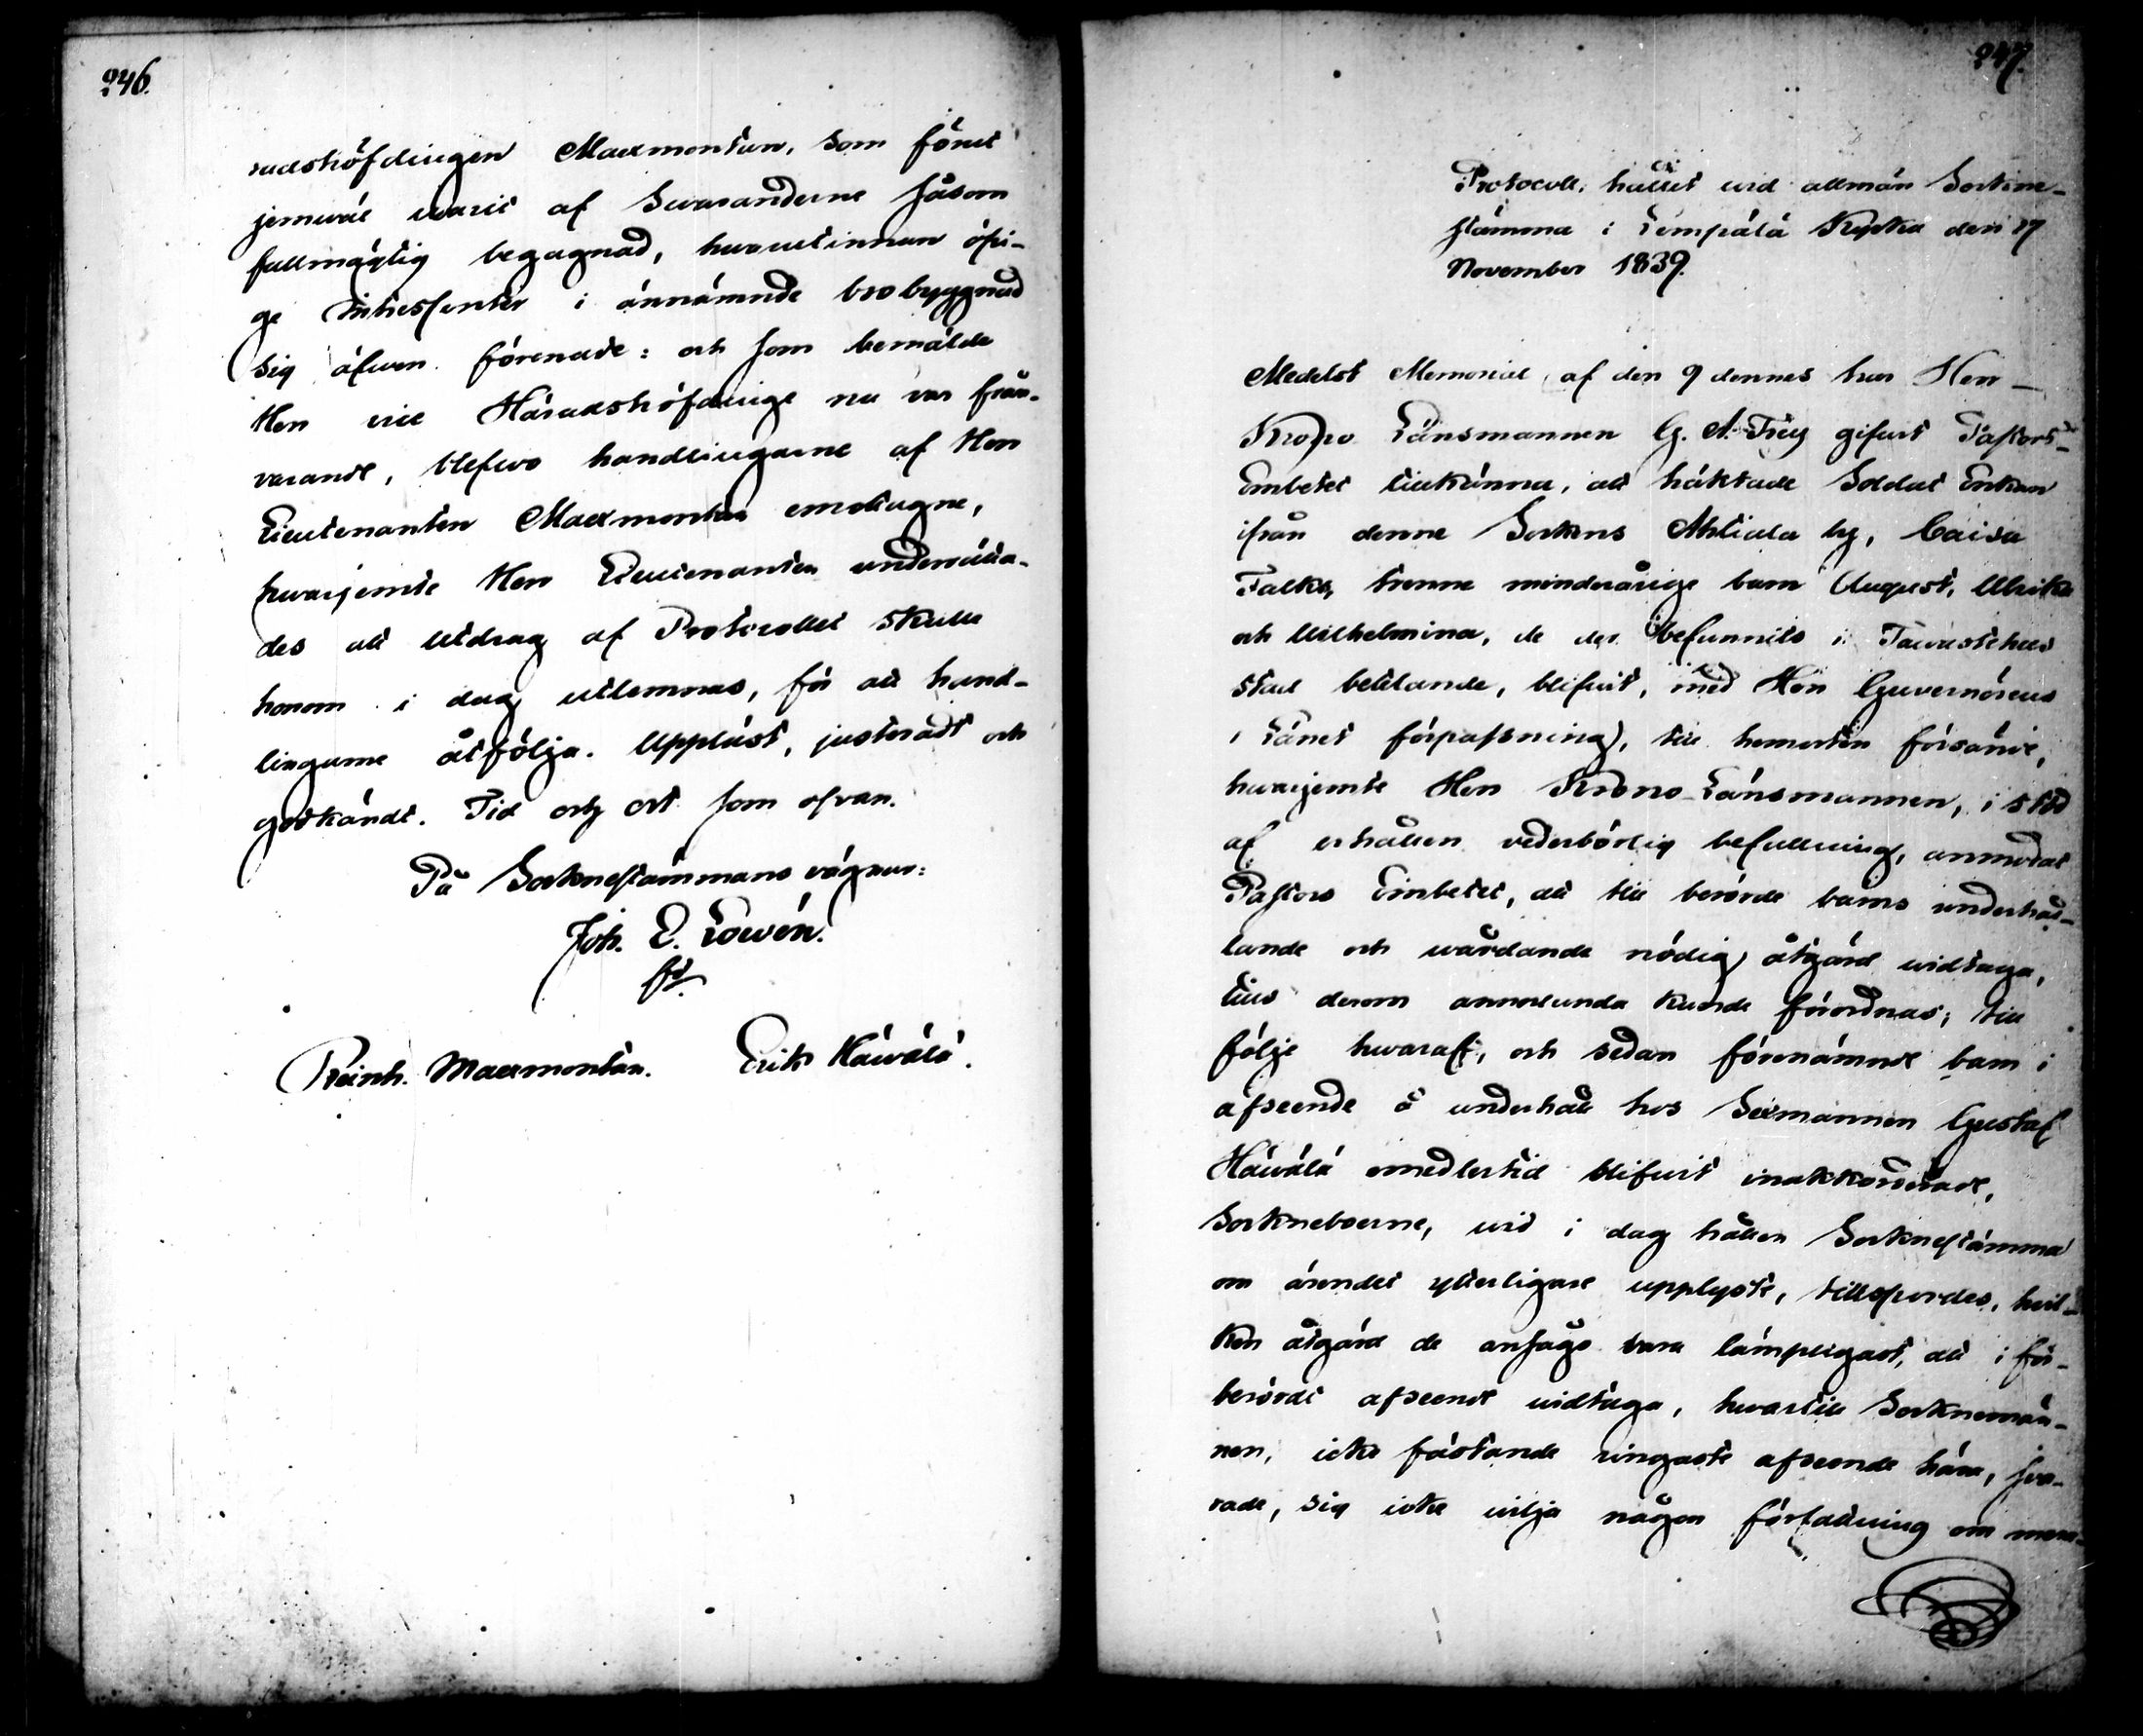 246.
radshöfdingen Maexmontan, som förut
jemväl warit af Swaranderne såsom
fullmägtig begagnad, hwarutinnan öfri-
ge Intressenter i ännämnde brobyggnad
sig äfwen förenade: och som bemälde
Herr vice Häradshöfdinge nu var från-
varande, blefwo handlingarne af Herr
Lieutenanten Maexmontan emottagne,
hwarjemte Herr Lieutenanten underrätta-
des att Utdrag af Protocollet skulle
honom i dag utlemnas, för att hand-
lingarne åtfölja. Uppläst, justeradt och
godkändt. Tid och ort som ofvan.
På Socknestämmans vägnar:
Joh. E. Lowén.
Reinh. Maexmontan. Erik Häivälä.
247.
Protocoll, hållet wid allmän Sockne-
stämma i Lempälä Kyrka den 17
November 1839.
Medelst Memorial af den 9 dennes har Herr
Krono Länsmannen G. A. Frey gifwit Pastors-
Embetet tillkänna, att häktade Soldat Enkan
ifrån denne Sockens Ahtiala by, Caisa
Falks, trenne minderårige barn August, Ulrika
och Wilhelmina, de der befunnits i Tawastehus
stad bettlande, blifwit, med Herr Guvernörens
i Länet förpassning, till hemorten försände,
hwarjemte Herr Krono Länsmannen, i stöd
af erhållen vederbörlig befallning, anmodat
Pastors Embetet, att till berörde barns underhål-
lande och wårdande nödig åtgärd widtaga,
tills derom annorlunda kunde förordnas; till
följe hwaraf, och sedan förenämnde barn i
afseende å underhåll hos Sexmannen Gustaf
Häiwälä emedlertid blifwit inakkorderade,
Sockneboerne, wid i dag hållen Sockneftämma
om ärendet ytterligare upplyste, tillspordes, hvil-
ken åtgärd de ansågo vara lämpligast, att i för-
berördt afseende widtaga, hwartill Socknemän-
nen, icke fästande ringaste afseende hära, sva-
rade, sig icke vilja någon författning om mera-